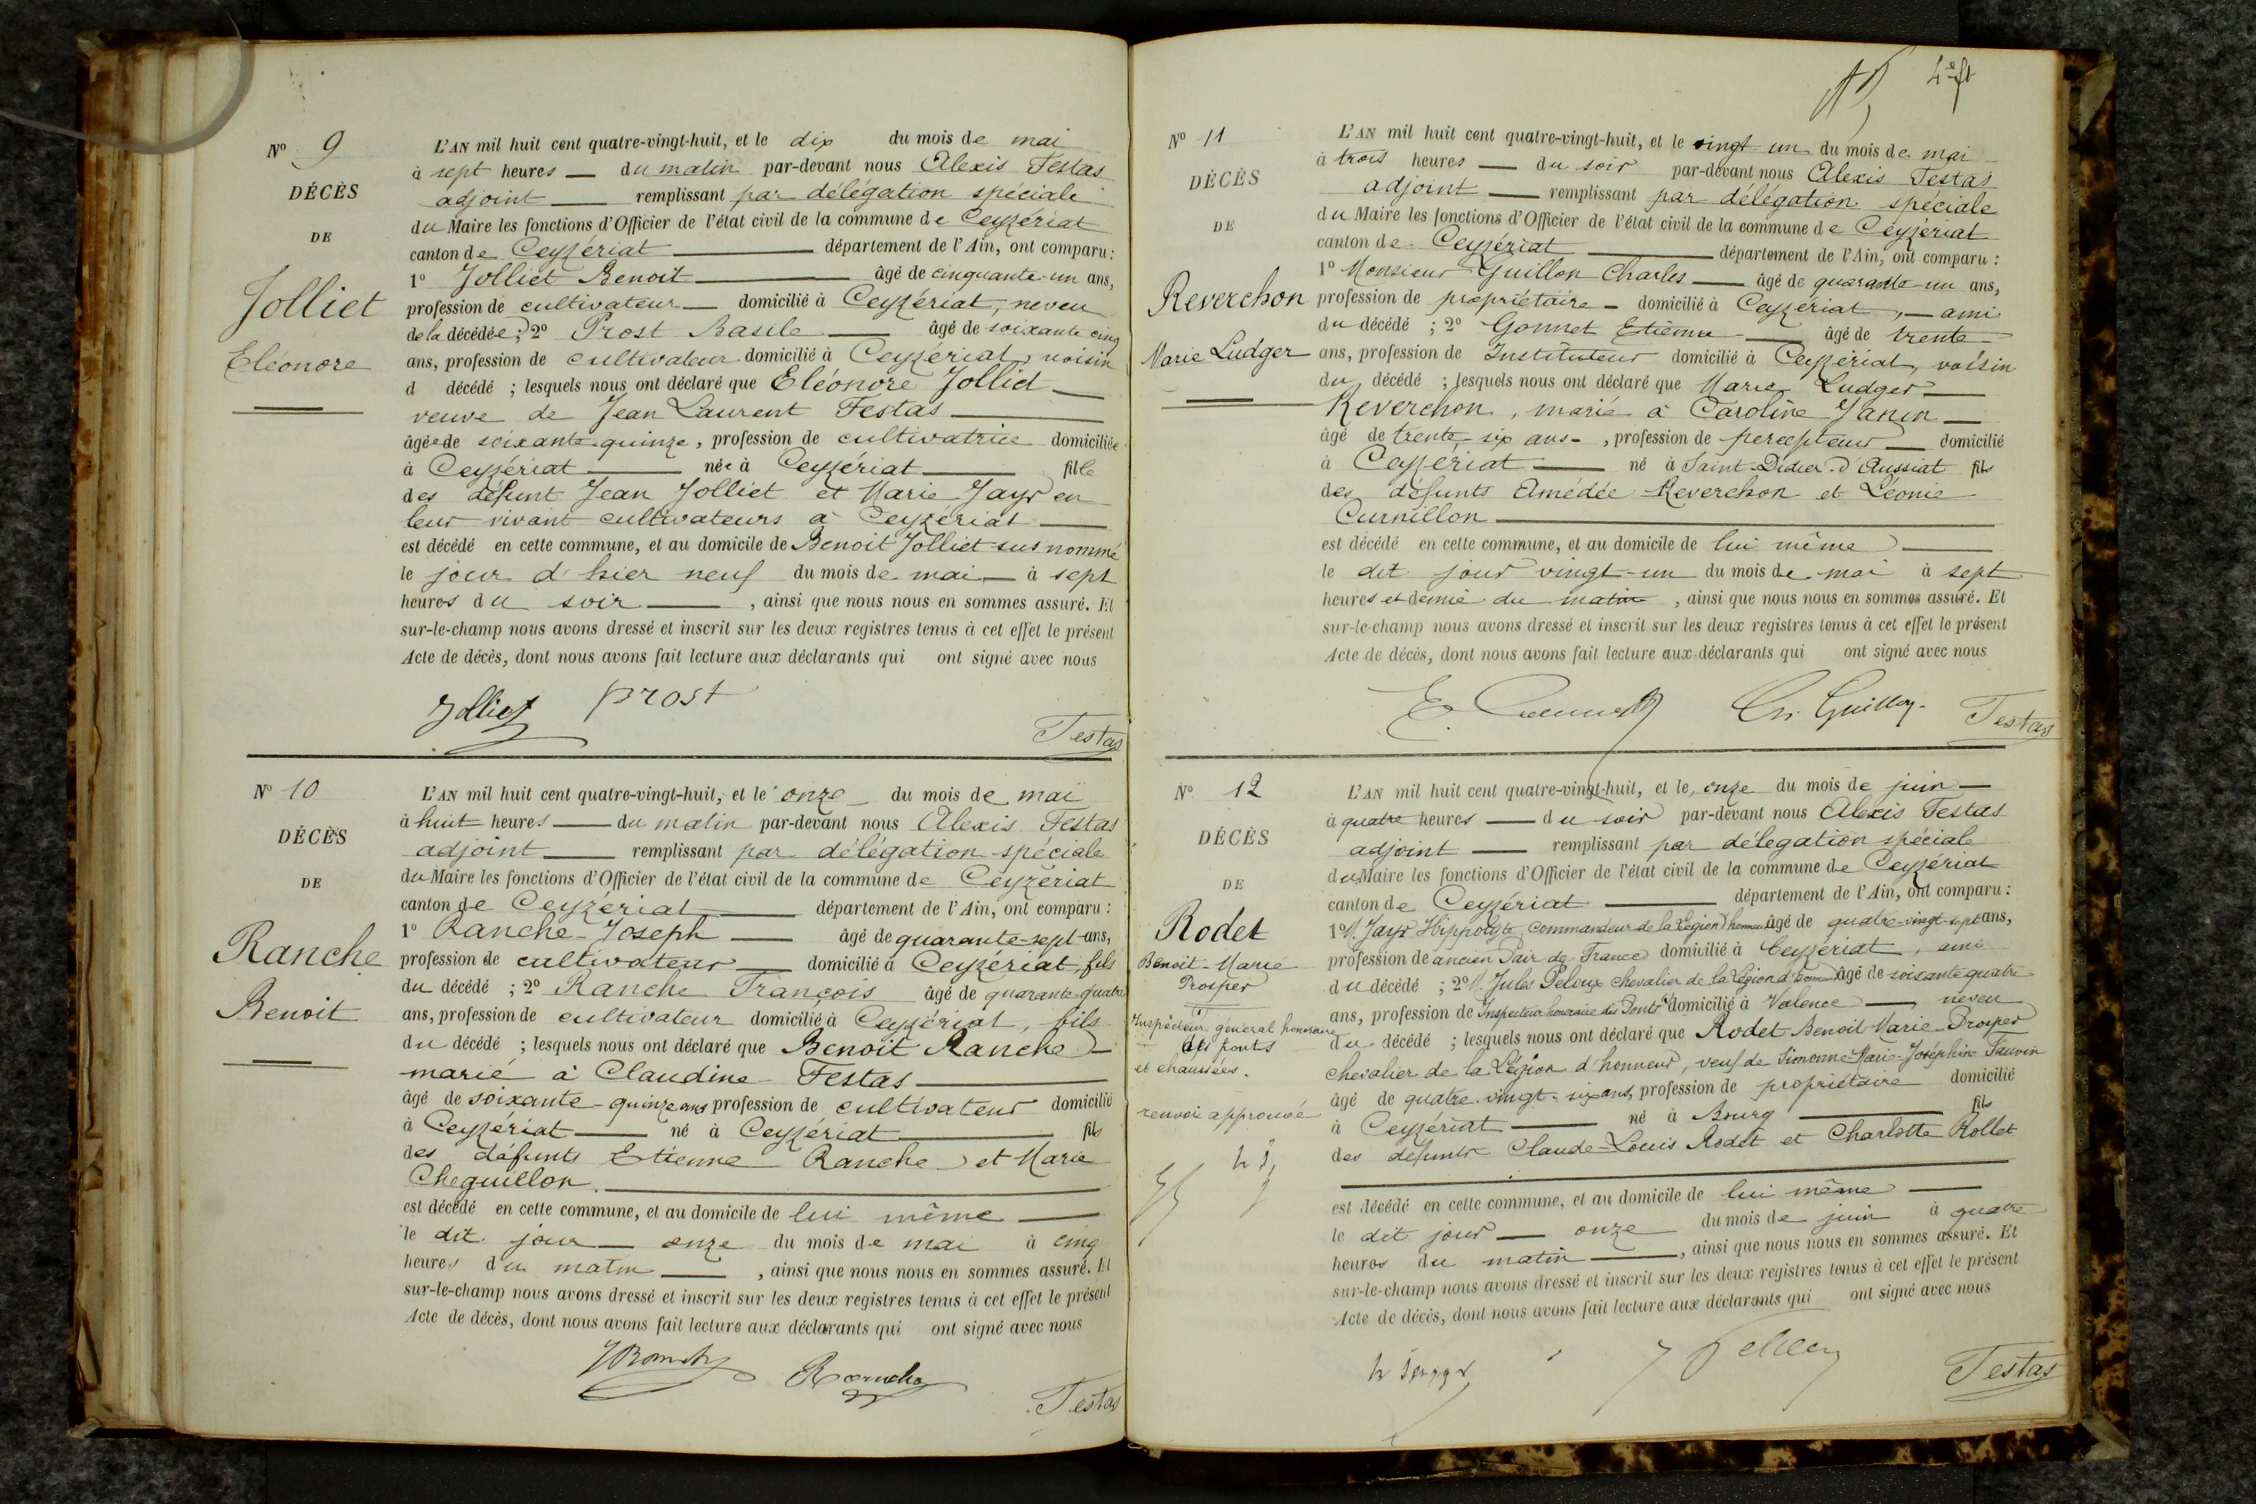 Nº 9
DÉCÈS
DE
Jolliet
Eléonore
L'AN mil huit cent quatre-vingt-huit, et le dix du mois de mai
à sept heures — du matin par-devant nous Alexis Festas
adjoint — remplissant par délégation spéciale
du Maire les fonctions d'Officier de l'état civil de la commune de Ceyzériat
canton de Ceyzériat — département de l'Ain, ont comparu :
1º Jolliet Benoit — âgé de cinquante-un ans,
profession de cultivateur — domicilié à Ceyzériat, neveu
de la décédée ; 2º Prost Basile — âgé de soixante cinq
ans, profession de cultivateur domicilié à Ceyzériat, voisin
d décédé ; lesquels nous ont déclaré que Eléonore Jolliet —
veuve de Jean Laurent Festas —
âgée de soixante-quinze, profession de cultivatrice domiciliée
à Ceyzériat — née à Ceyzériat — fille
des défunt Jean Jolliet et Marie Jayr en
leur vivant cultivateurs à Ceyzériat —
est décédé en cette commune, et au domicile de Benoit Jolliet susnommé
le jour d'hier neuf du mois de mai — à sept
heures du soir — , ainsi que nous nous en sommes assuré. Et
sur-le-champ nous avons dressé et inscrit sur les deux registres tenus à cet effet le présent
Acte de décès, dont nous avons fait lecture aux déclarants qui ont signé avec nous
Jolliet prost
Testas
Nº 10
DÉCÈS
DE
Ranche
Benoit
L'AN mil huit cent quatre-vingt-huit, et le onze du mois de mai
à huit heures — du matin par-devant nous Alexis Festas
adjoint — remplissant par délégation spéciale
du Maire les fonctions d'Officier de l'état civil de la commune de Ceyzériat
canton de Ceyzériat — département de l'Ain, ont comparu :
1º Ranche Joseph — âgé de quarante-sept ans,
profession de cultivateur — domicilié à Ceyzériat, fils
du décédé ; 2º Ranche François âgé de quarante-quatre
ans, profession de cultivateur domicilié à Ceyzériat, fils
du décédé ; lesquels nous ont déclaré que Benoit Ranche —
marié à Claudine Festas —
âgé de soixante-quinze ans profession de cultivateur domicilié
à Ceyzériat — né à Ceyzériat — fils
des défunts Etienne Ranche et Marie
Cheguillon. —
est décédé en cette commune, et au domicile de lui même —
le dit jour — onze du mois de mai à cinq
heures du matin — , ainsi que nous nous en sommes assuré. Et
sur-le-champ nous avons dressé et inscrit sur les deux registres tenus à cet effet le présent
Acte de décès, dont nous avons fait lecture aux déclarants qui ont signé avec nous
Testas
Nº 11
DÉCÈS
DE
Reverchon
Marie Ludger
L'AN mil huit cent quatre-vingt-huit, et le vingt-un du mois de mai
à trois heures — du soir par-devant nous Alexis Festas
adjoint — remplissant par délégation spéciale
du Maire les fonctions d'Officier de l'état civil de la commune de Ceyzériat
canton de Ceyzériat — département de l'Ain, ont comparu :
1º Monsieur Guillon Charles — âgé de quarante-un ans,
profession de propriétaire — domicilié à Ceyzériat, — ami
du décédé ; 2º Gonnet Etienne — âgé de trente
ans, profession de Instituteur domicilié à Ceyzériat, voisin
du décédé ; lesquels nous ont déclaré que Marie Ludger —
Reverchon, marié à Caroline Janin —
âgé de trente-six ans-, profession de percepteur — domicilié
à Ceyzériat — né à Saint-Didier-d'Aussiat fils
des défunts Amédée Reverchon et Léonie
Curnillon —
est décédé en cette commune, et au domicile de lui même —
le dit jour vingt-un du mois de mai à sept
heures et demie du matin , ainsi que nous nous en sommes assuré. Et
sur-le-champ nous avons dressé et inscrit sur les deux registres tenus à cet effet le présent
Acte de décès, dont nous avons fait lecture aux déclarants qui ont signé avec nous
Ch. Guillon Testas
Nº 12
DÉCÈS
DE
Rodet
Benoit-Marie
Prosper
Inspecteur général honoraire
des ponts
et chaussées.
renvoi approuvé
L'AN mil huit cent quatre-vingt-huit, et le onze du mois de juin —
à quatre heures — du soir par-devant nous Alexis Festas
adjoint — remplissant par délegation spéciale
du Maire les fonctions d'Officier de l'état civil de la commune de Ceyzériat
canton de Ceyzériat — département de l'Ain, ont comparu :
1º M. Jayr Hippolyte, Commandeur de la Légion d'honneur âgé de quatre-vingt-sept ans,
profession de ancien Pair de France domicilié à Ceyzériat, ami
du décédé ; 2º M. Jules Peloux Chevalier de la Légion d'honneur âgé de soixante quatre
ans, profession de Inspecteur honoraire des Ponts domicilié à Valence — neveu
du décédé ; lesquels nous ont déclaré que Rodet Benoit Marie-Prosper
chevalier de la Légion d'honneur, veuf de Simonne-Marie-Joséphine Sauvin
âgé de quatre-vingt-six ans, profession de propriétaire domicilié
à Ceyzériat — né à Bourg — fils
des défunts Claude-Louis Rodet et Charlotte Rollet
est décédé en cette commune, et au domicile de lui même —
le dit jour — onze du mois de juin à quatre
heures du matin — , ainsi que nous nous en sommes assuré. Et
sur-le-champ nous avons dressé et inscrit sur les deux registres tenus à cet effet le présent
Acte de décès, dont nous avons fait lecture aux déclarants qui ont signé avec nous
Testas